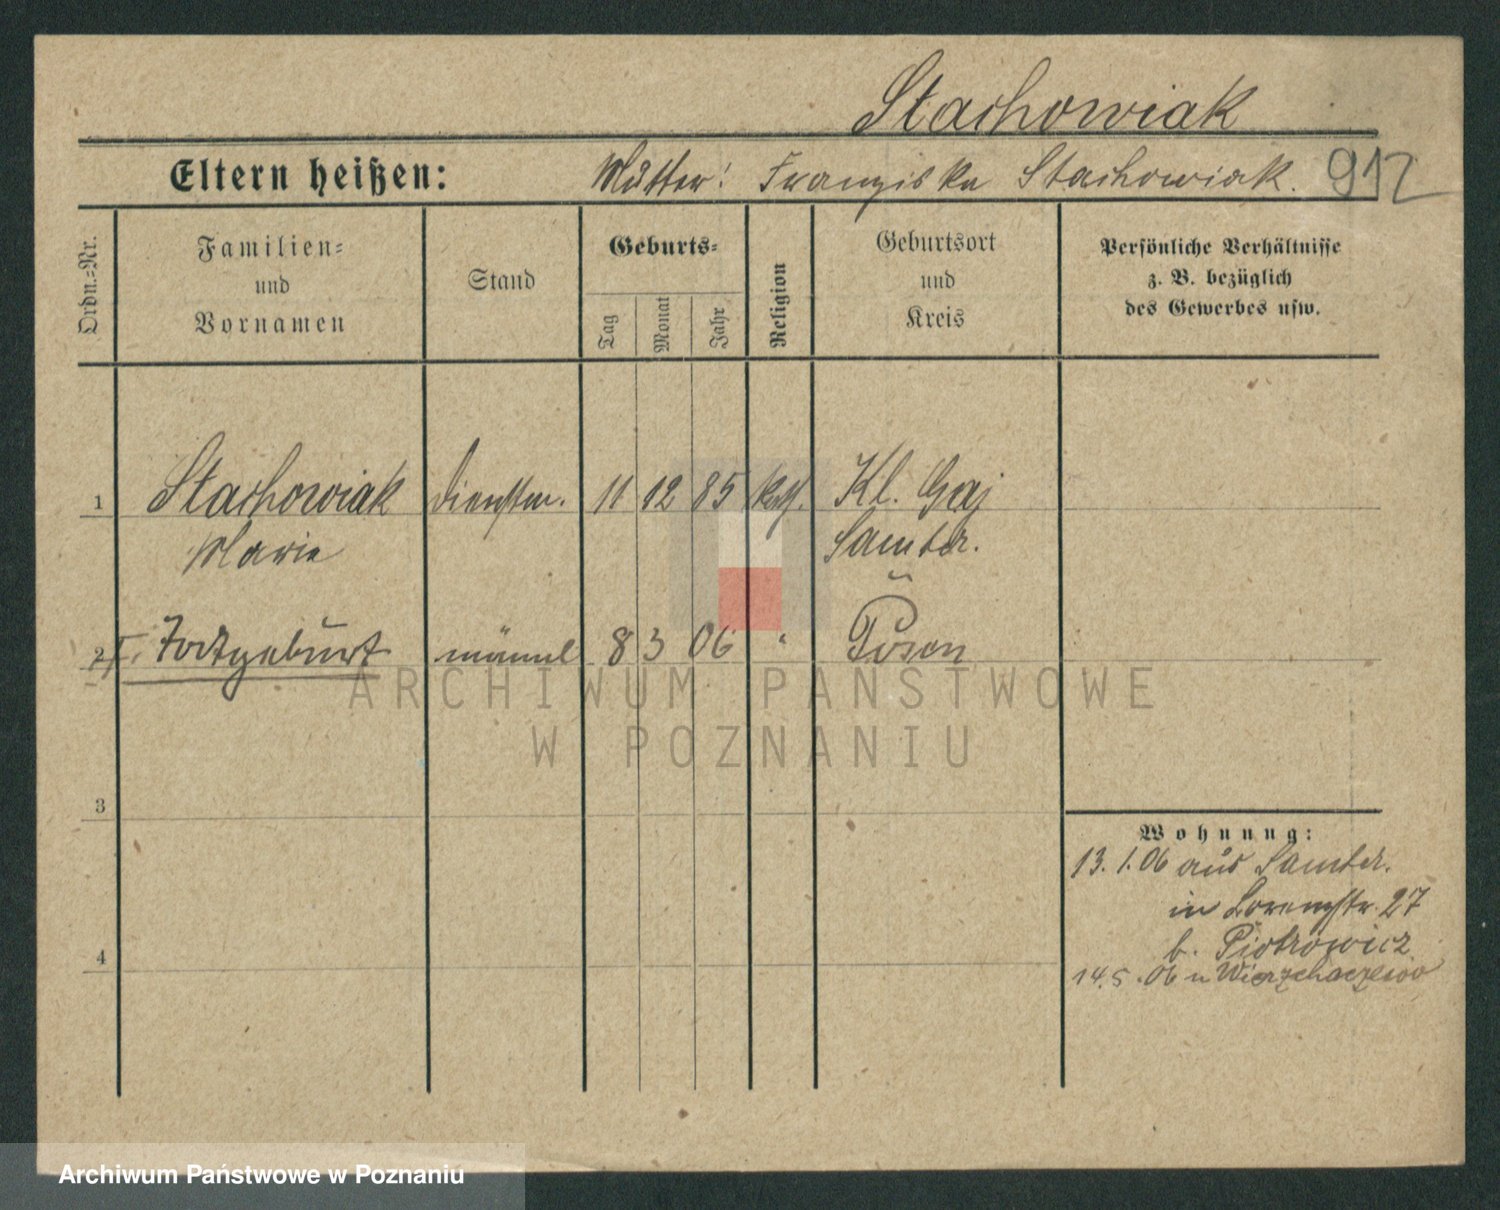 Stachowiak
Eltern heißen: Mutter: Franziska Stachowiak. 912
Ordn.=Nr.
Familien=
und
Vornamen
Stand
Geburts=
Tag
Monat
Jahr
Religion
Geburtsort
und
Kreis
Persönliche Verhältnisse
z. B. bezüglich
des Gewerbes usw.
1 Stachowiak Dienstm. 11 12 85 kath. Kl. Gaj
Marie Samter.
2 Totgeburt männl 8 3 06 " Posen
3
4
Wohnung:
13.1.06 aus Samter.
in Lorenzstr. 27
b. Piotrowicz
14.5.06 n Wierzchaczewo
ARCHIWUM PAŃSTWOWE
W POZNANIU
Archiwum Państwowe w Poznaniu